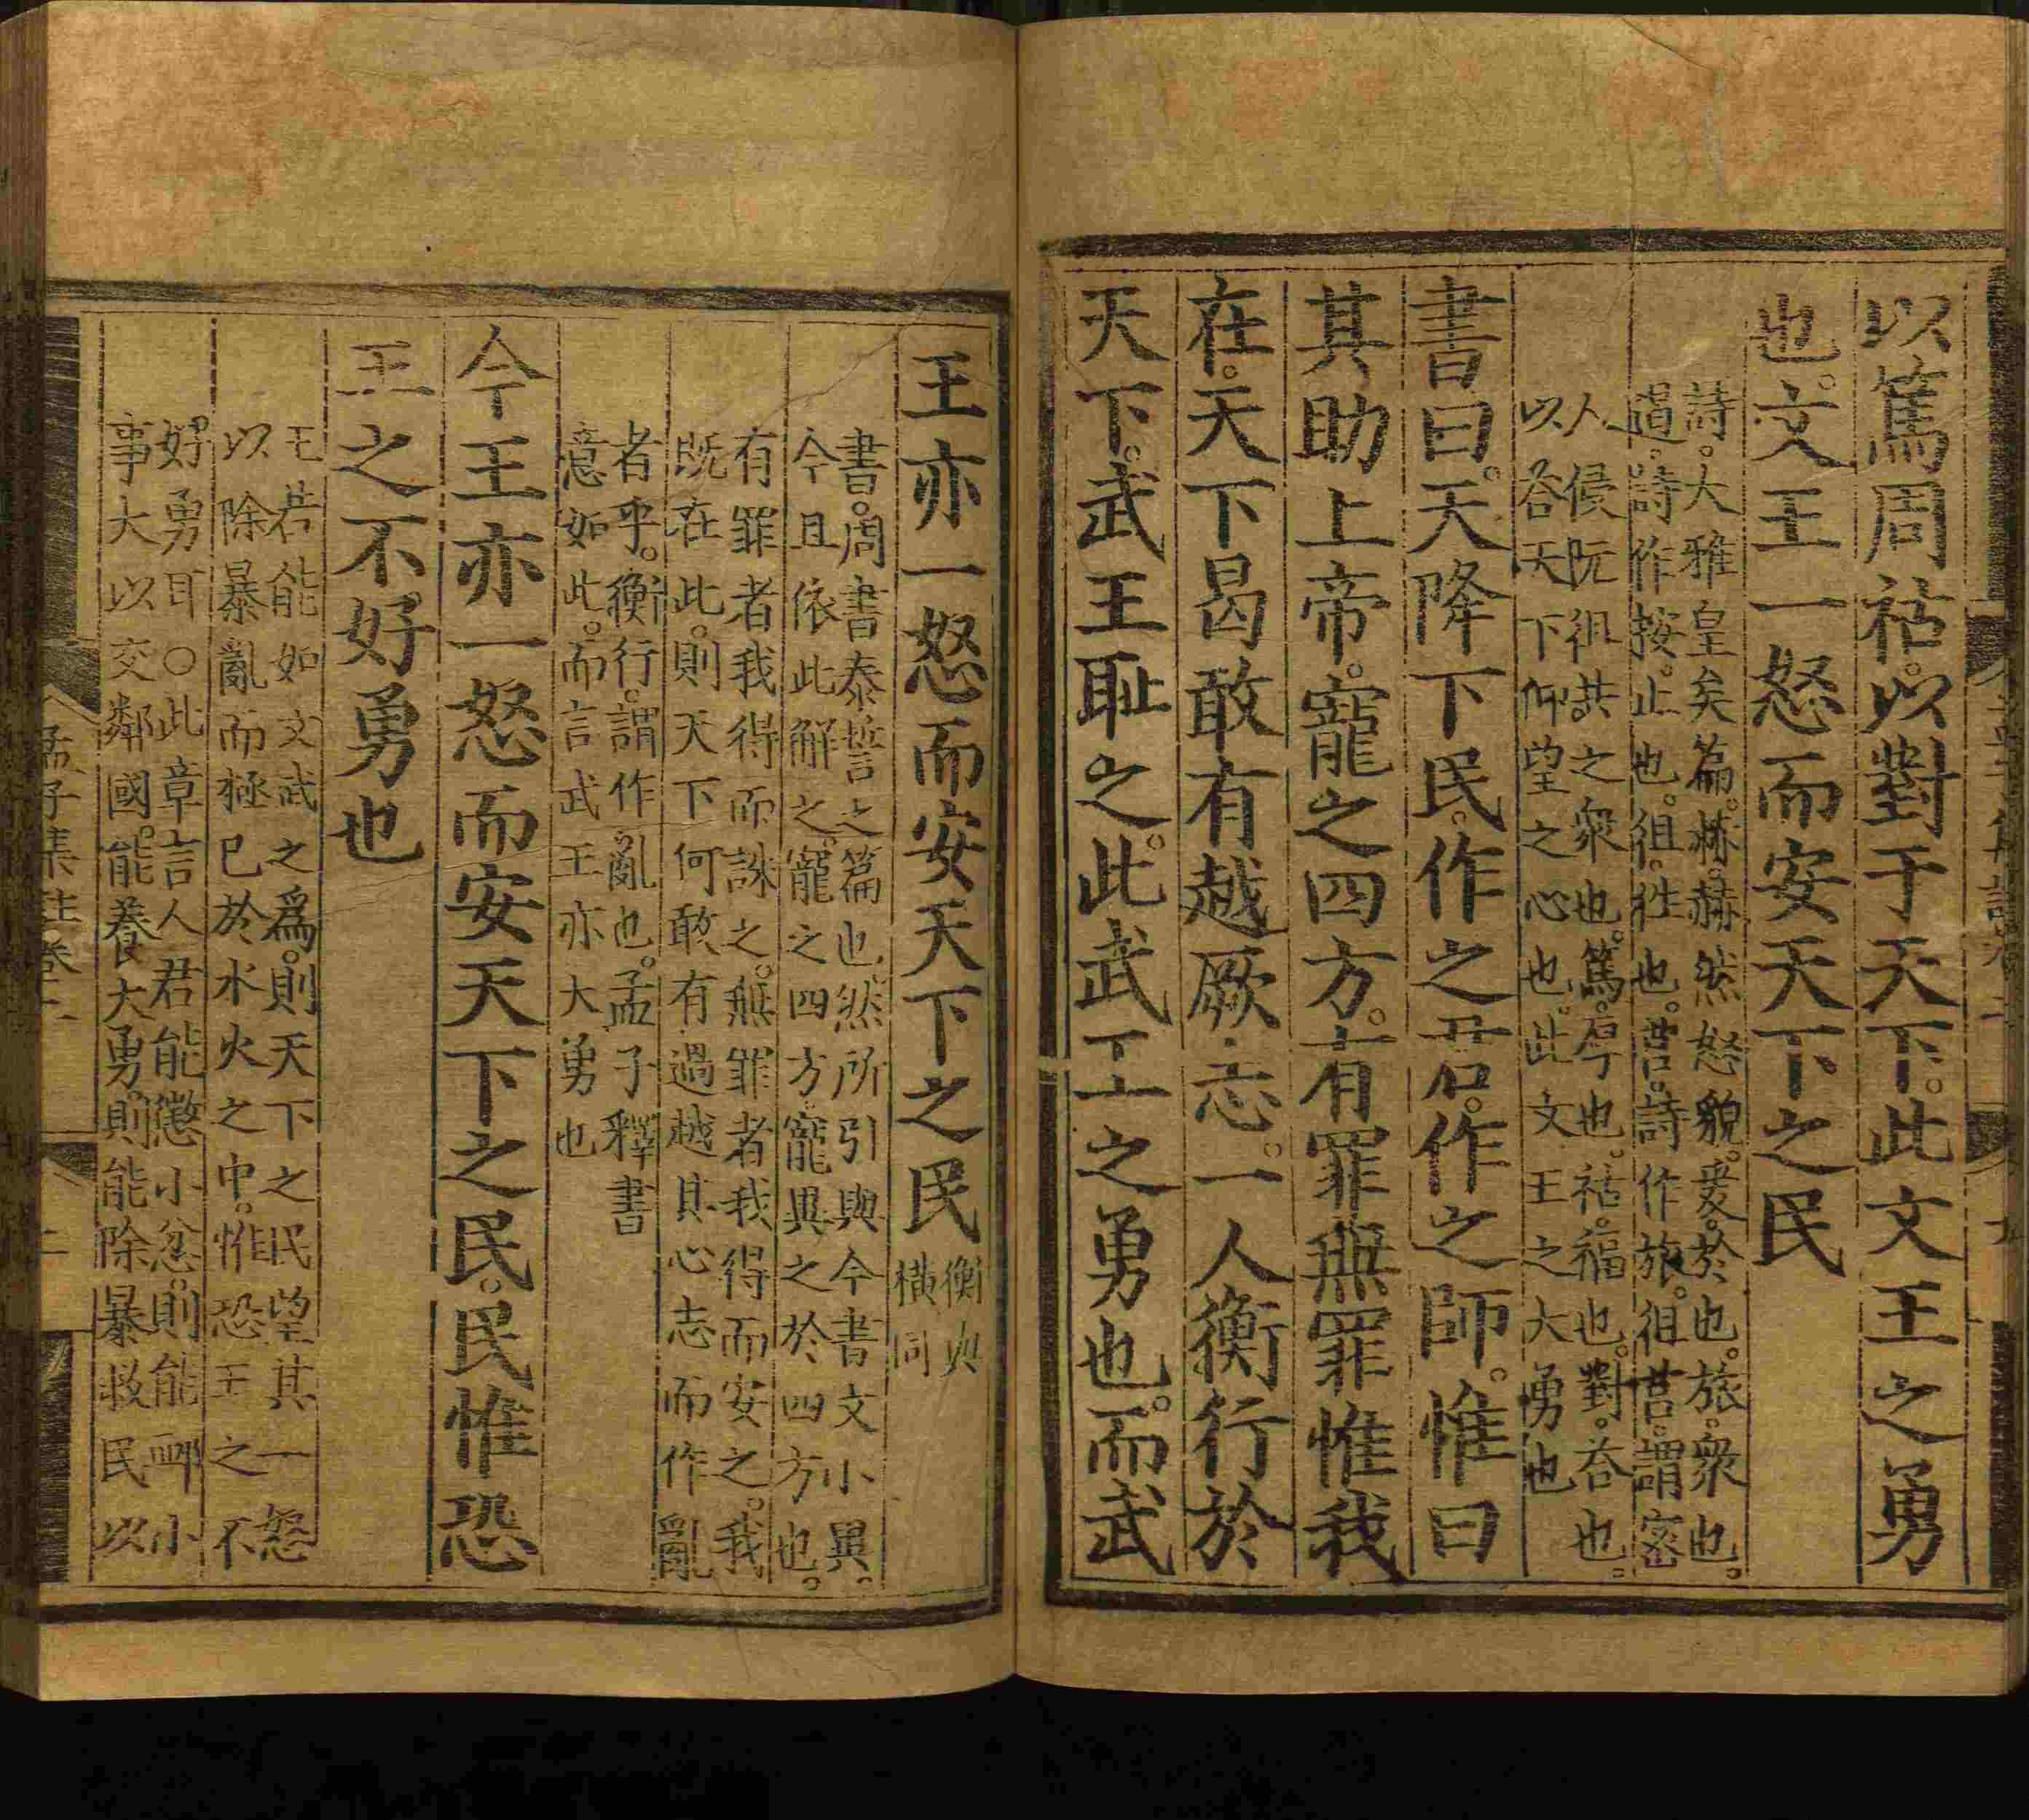 以篤周祜。以對于天下。此文王之勇
也。文王一怒而安天下之民
詩。大雅皇矣篇。赫。赫然怒貌。爰。於也。旅。衆也。
遏。詩作按。止也。徂。往也。莒。詩作旅。徂莒。謂密
人侵阮徂共之衆也。篤。厚也。祜。福也。對。荅也。
以荅天下仰望之心也。此文王之大勇也
書曰。天降下民。作之君。作之師。惟曰
其助上帝。寵之四方。有罪無罪惟我
在。天下曷敢有越厥志。一人衡行於
天下。武王恥之。此武王之勇也。而武
王亦一怒而安天下之民
衡與
橫同
書。周書泰誓之篇也。然所引與今書文小異。
今且依此解之。寵之四方。寵異之於四方也。
有罪者我得而誅之。無罪者我得而安之。我
既在此。則天下何敢有過越其心志而作亂
者乎。衡行。謂作亂也。孟子釋書
意如此。而言武王亦大勇也
今王亦一怒而安天下之民。民惟恐
王之不好勇也
王若能如文武之爲。則天下之民望其一怒
以除暴亂而極己於水火之中。惟恐王之不
好勇耳○此章言人君能懲小忿。則能䘏小
事大以交鄰國。能養大勇。則能除暴救民以
孟子集註卷二